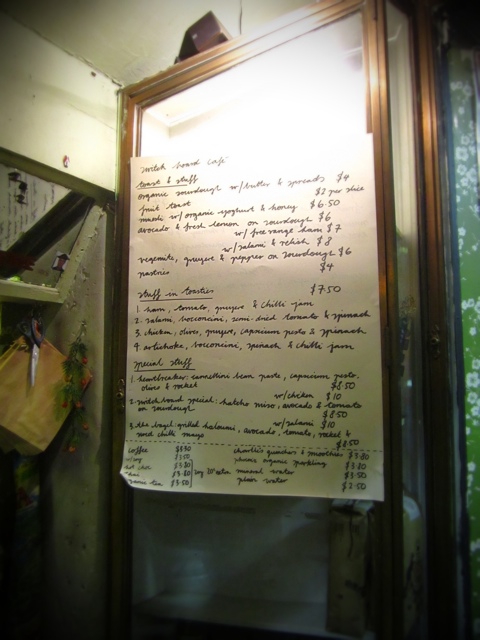 switch board café
toast & stuff
organic sourdough w/butter & spreads $4
fruit toast $3 per slice
muesli w/ organic yoghurt & honey $6.50
avocado & fresh lemon on sourdough $6
w/ free range ham $7
w/salami & relish $8
vegemite, gruyere & pepper on sourdough $6
pastries $4
stuff in toasties $7.50
1. ham, tomato, gruyere & chilli jam
2. salami, bocconcini, semi-dried tomato & spinach
3. chicken, olives, gruyere, capsicum pesto & spinach
4. artichoke, bocconcini, spinach & chilli jam
special stuff
1. heartbreaker: cannellini bean paste, capsicum pesto,
olives & rocket $8.50
w/chicken $10
2. switch board special: hatcho miso, avocado & tomato
on sourdough $8.50
w/salami $10
3. the bagel: grilled haloumi, avocado, tomato, rocket &
sweet chilli mayo $8.50
coffee $3.30 charlie's quenchers & smoothies $3.80
$3.50 phoenix organic sparkling $3.80
hot choc $3.80 soy 50c extra mineral water $3.50
chai $3.80 plain water $2.50
tea $3.50